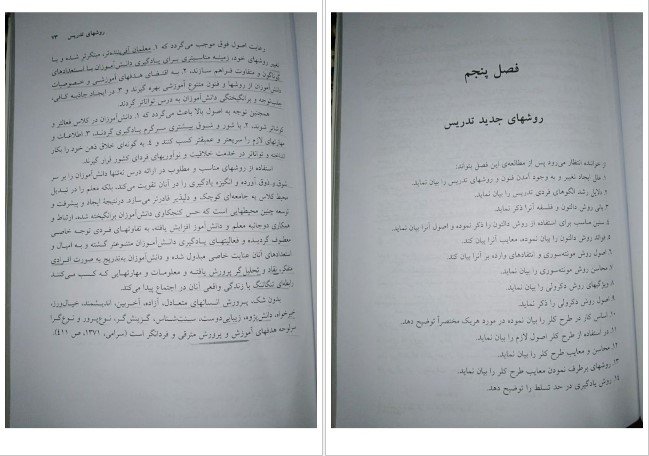 روشهای تدریس ۷۳
رعایت اصول فوق موجب می‌گردد که ۱. معلمان آفریننده‌تر، مبتکرتر شده و با
تغییر روشهای خود، زمینه مناسبتری برای یادگیری دانش‌آموزان با استعدادهای
گوناگون و متفاوت فراهم سازند، ۲. به اقتضای هدفهای آموزشی و خصوصیات
دانش‌آموزان از روشها و فنون متنوع آموزشی بهره گیرند و ۳. در ایجاد جاذبه کافی،
جلب توجه و برانگیختگی دانش‌آموزان به درس تواناتر گردند.
همچنین توجه به اصول بالا باعث می‌گردد که ۱. دانش‌آموزان در کلاس فعالتر و
کوشاتر شوند، ۲. با شور و شوق بیشتری سرگرم یادگیری گردند، ۳. اطلاعات و
مهارتهای لازم را سریعتر و عمیقتر کسب کنند و ۴. به گونه‌ای خلاق ذهن خود را بکار
انداخته و تواناتر در خدمت خلاقیت و نوآوریهای فردای کشور قرار گیرند.
استفاده از روشهای مناسب و مطلوب در ارائه درس نه‌تنها دانش‌آموزان را بر سر
شوق و ذوق آورده و انگیزه یادگیری را در آنان تقویت می‌کند، بلکه معلم را در تبدیل
محیط کلاس به جامعه‌ای کوچک و دلپذیر قادرتر می‌سازد. درنتیجه ایجاد و پیشرفت و
توسعه چنین محیطهایی است که حس کنجکاوی دانش‌آموز برانگیخته شده، ارتباط و
همکاری دوجانبه معلم و دانش‌آموز افزایش یافته، به تفاوتهای فردی توجه خاصی
معطوف گردیده و فعالیتهای یادگیری دانش‌آموزان متنوع‌تر گشته و به امیال و
استعدادهای آنان عنایت خاصی مبذول شده و دانش‌آموزان به‌تدریج به صورت افرادی
متفکر، نقاد و تحلیل‌گر پرورش یافته و معلومات و مهارتهایی که کسب می‌کنند
رابطه‌ای تنگاتنگ با زندگی واقعی آنان در اجتماع پیدا می‌کند.
بدون شک، پرورش انسانهای متعادل، آزاده، آخربین، اندیشمند، خیال‌ورز،
خیرخواه، دانش‌پژوه، زیبایی‌دوست، سنت‌شناس، گزینش‌گر، نوع‌پرور و نوع‌گرا
سرلوحه هدفهای آموزش و پرورش مترقی و فردانگر است (سرامی، ۱۳۷۱، ص ۴۱۱).
فصل پنجم
روشهای جدید تدریس
از خواننده انتظار می‌رود پس از مطالعه‌ی این فصل بتواند:
۱. علل ایجاد تغییر و به وجود آمدن فنون و روشهای تدریس را بیان نماید.
۲. دلایل رشد الگوهای فردی تدریس را بیان نماید.
۳. پلی روش دالتون و فلسفه آنرا ذکر نماید.
۴. سنین مناسب برای استفاده از روش دالتون را ذکر نموده و اصول آنرا بیان نماید.
۵. فواید روش دالتون را بیان نموده، معایب آنرا بیان کند.
۶. اصول روش مونته‌سوری و انتقادهای وارده بر آنرا بیان کند.
۷. محاسن روش مونته‌سوری را بیان نماید.
۸. ویژگیهای روش دکرولی را بیان نماید.
۹. اصول روش دکرولی را ذکر نماید.
۱۰. اساس کار در طرح کلر را بیان نموده در مورد هریک مختصراً توضیح دهد.
۱۱. در استفاده از طرح کلر اصول لازم را بیان نماید.
۱۲. محاسن و معایب طرح کلر را بیان نماید.
۱۳. روشهای برطرف نمودن معایب طرح کلر را بیان نماید.
۱۴. روش یادگیری در حد تسلط را توضیح دهد.